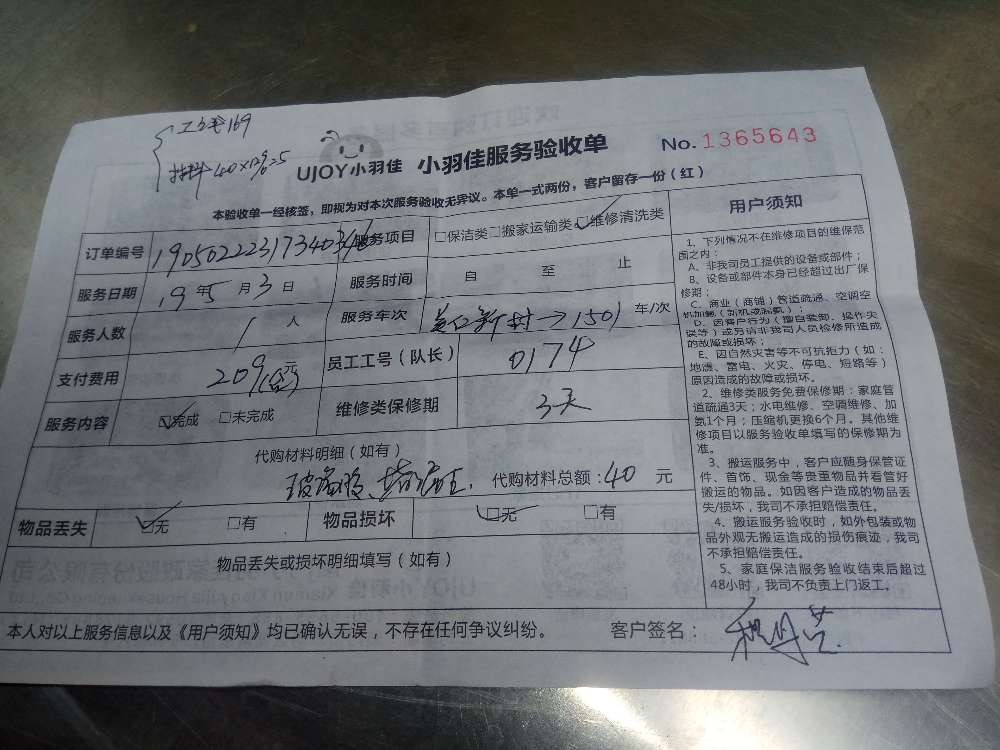 工费169
材料40×12%=5
UJOY小羽佳 小羽佳服务验收单 No.1365643
本验收单一经核签，即视为对本次服务验收无异议。本单一式两份，客户留存一份（红）
订单编号 服务项目 □保洁类□搬家运输类☑维修清洗类
服务日期 19年5月3日 服务时间 自 至 止
服务人数 1人 服务车次 新村→1501 车/次
支付费用 209 元 员工工号（队长） 0174
服务内容 ☑完成 □未完成 维修类保修期 3天
代购材料明细（如有）
玻璃胶、 代购材料总额：40 元
物品丢失 ☑无 □有 物品损坏 ☑无 □有
物品丢失或损坏明细填写（如有）
本人对以上服务信息以及《用户须知》均已确认无误，不存在任何争议纠纷。 客户签名：
用户须知
1、下列情况不在维修项目的维保范
围之内：
A、非我司员工提供的设备或部件；
B、设备或部件本身已经超过出厂保
修期；
C、商业（商铺）管道疏通、空调空
机加氨（新机或漏氨）；
D、因客户行为（擅自装卸、操作失
误等）或另请非我司人员检修所造成
的故障或损坏；
E、因自然灾害等不可抗拒力（如：
地震、雷电、火灾、停电、短路等）
原因造成的故障或损坏。
2、维修类服务免费保修期：家庭管
道疏通3天；水电维修、空调维修、加
氨1个月；压缩机更换6个月。其他维
修项目以服务验收单填写的保修期为
准。
3、搬运服务中，客户应随身保管证
件、首饰、现金等贵重物品并看管好
搬运的物品。如因客户造成的物品丢
失/损坏，我司不承担赔偿责任。
4、搬运服务验收时，如外包装或物
品外观无搬运造成的损伤痕迹，我司
不承担赔偿责任。
5、家庭保洁服务验收结束后超过
48小时，我司不负责上门返工。